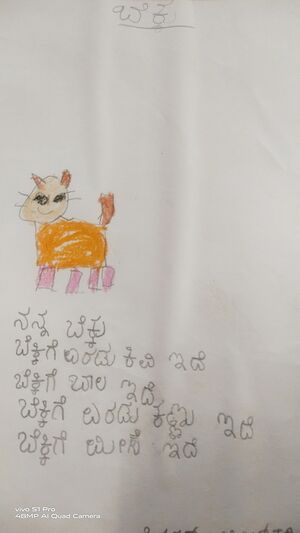 ಬೆಕ್ಕು
ನನ್ನ ಬೆಕ್ಕು
ಬೆಕ್ಕಿಗೆ ಎರಡು ಕಿವಿ ಇದೆ
ಬೆಕ್ಕಿಗೆ ಬಾಲ ಇದೆ
ಬೆಕ್ಕಿಗೆ ಎರಡು ಕಣ್ಣು ಇದೆ
ಬೆಕ್ಕಿಗೆ ಮೀಸೆ ಇದೆ
vivo S1 Pro
48MP AI Quad Camera